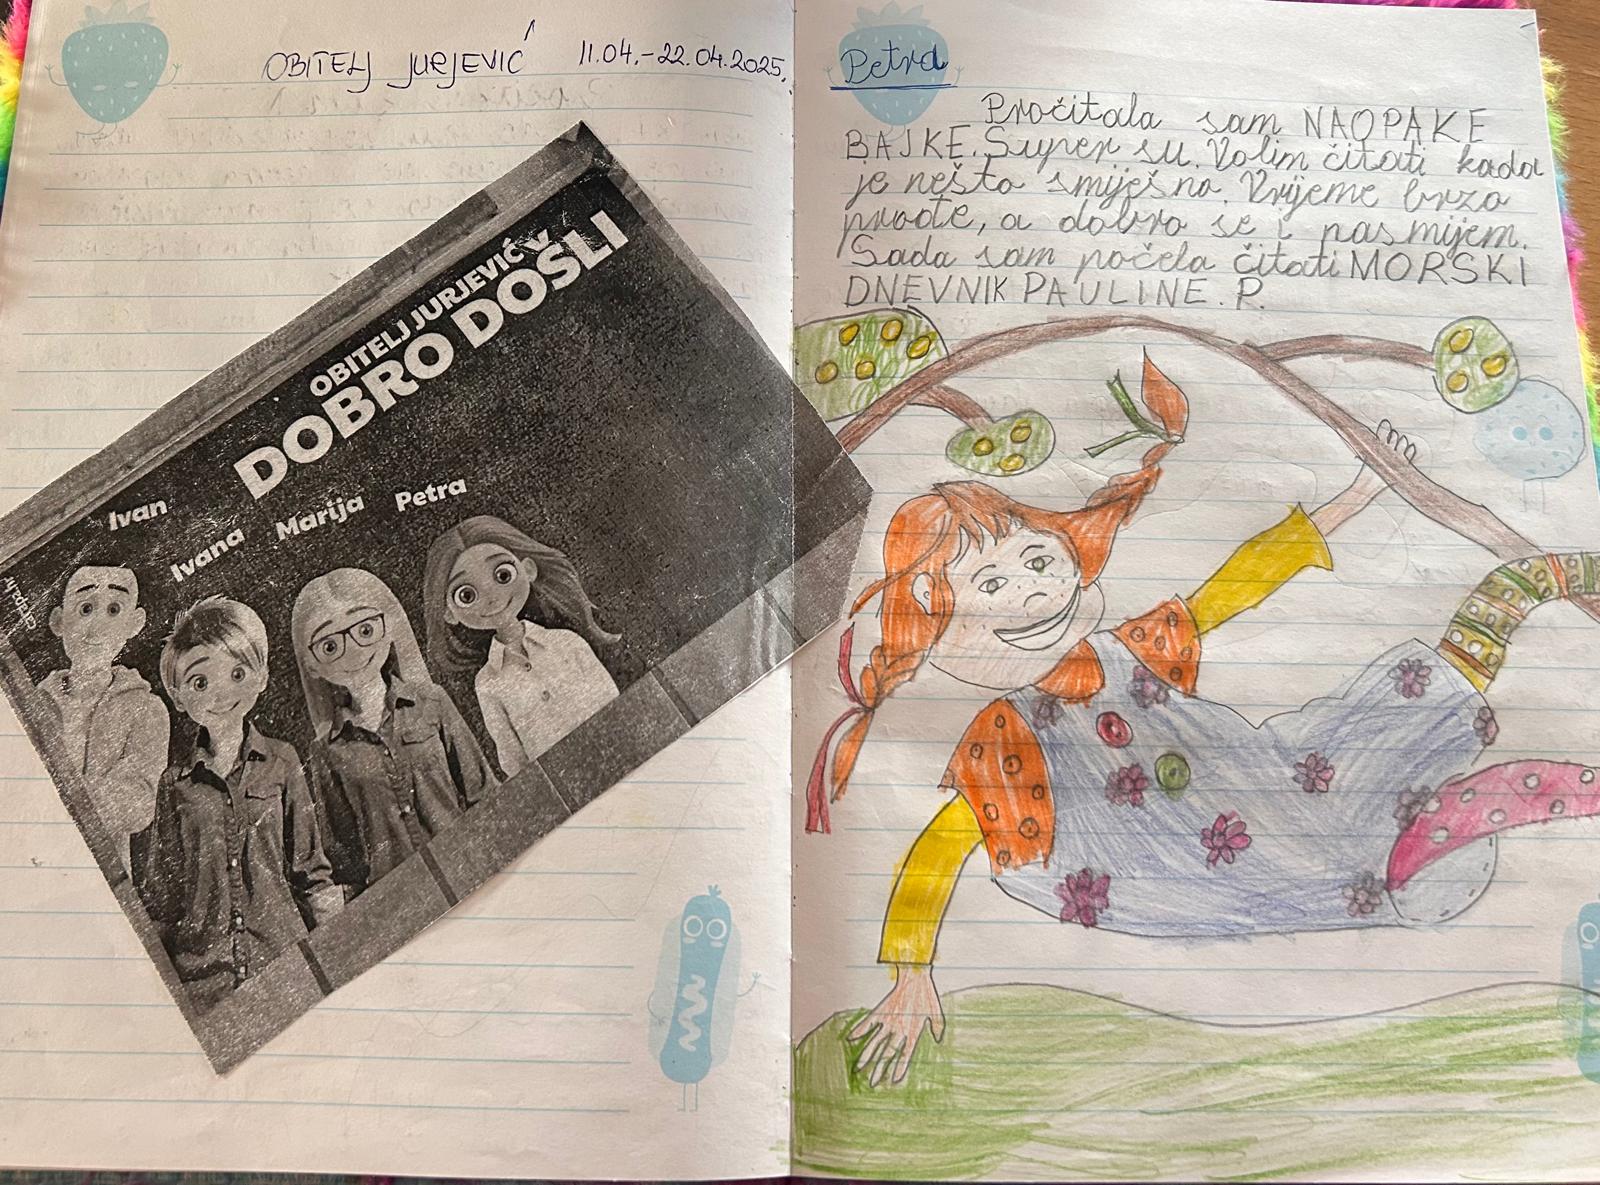 OBITELJ JURJEVIĆ 11.04.-22.04.2025.
OBITELJ JURJEVIĆ
DOBRO DOŠLI
Ivan
Ivana
Marija
Petra
Petra
Pročitala sam NAOPAKE
BAJKE. Super su. Volim čitati kada
je nešto smiješno. Vrijeme brzo
prođe, a dobro se i nasmijem.
Sada sam počela čitati MORSKI
DNEVNIK PAULINE. P.